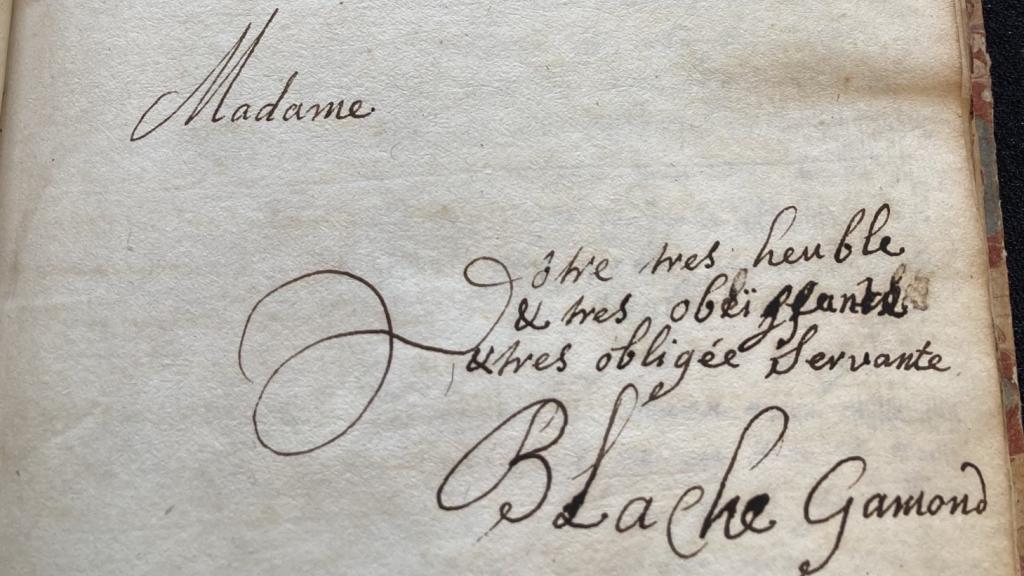 Madame
Vôtre tres heuble
& tres obeïssante
& tres obligée Servante
Blache Gamond